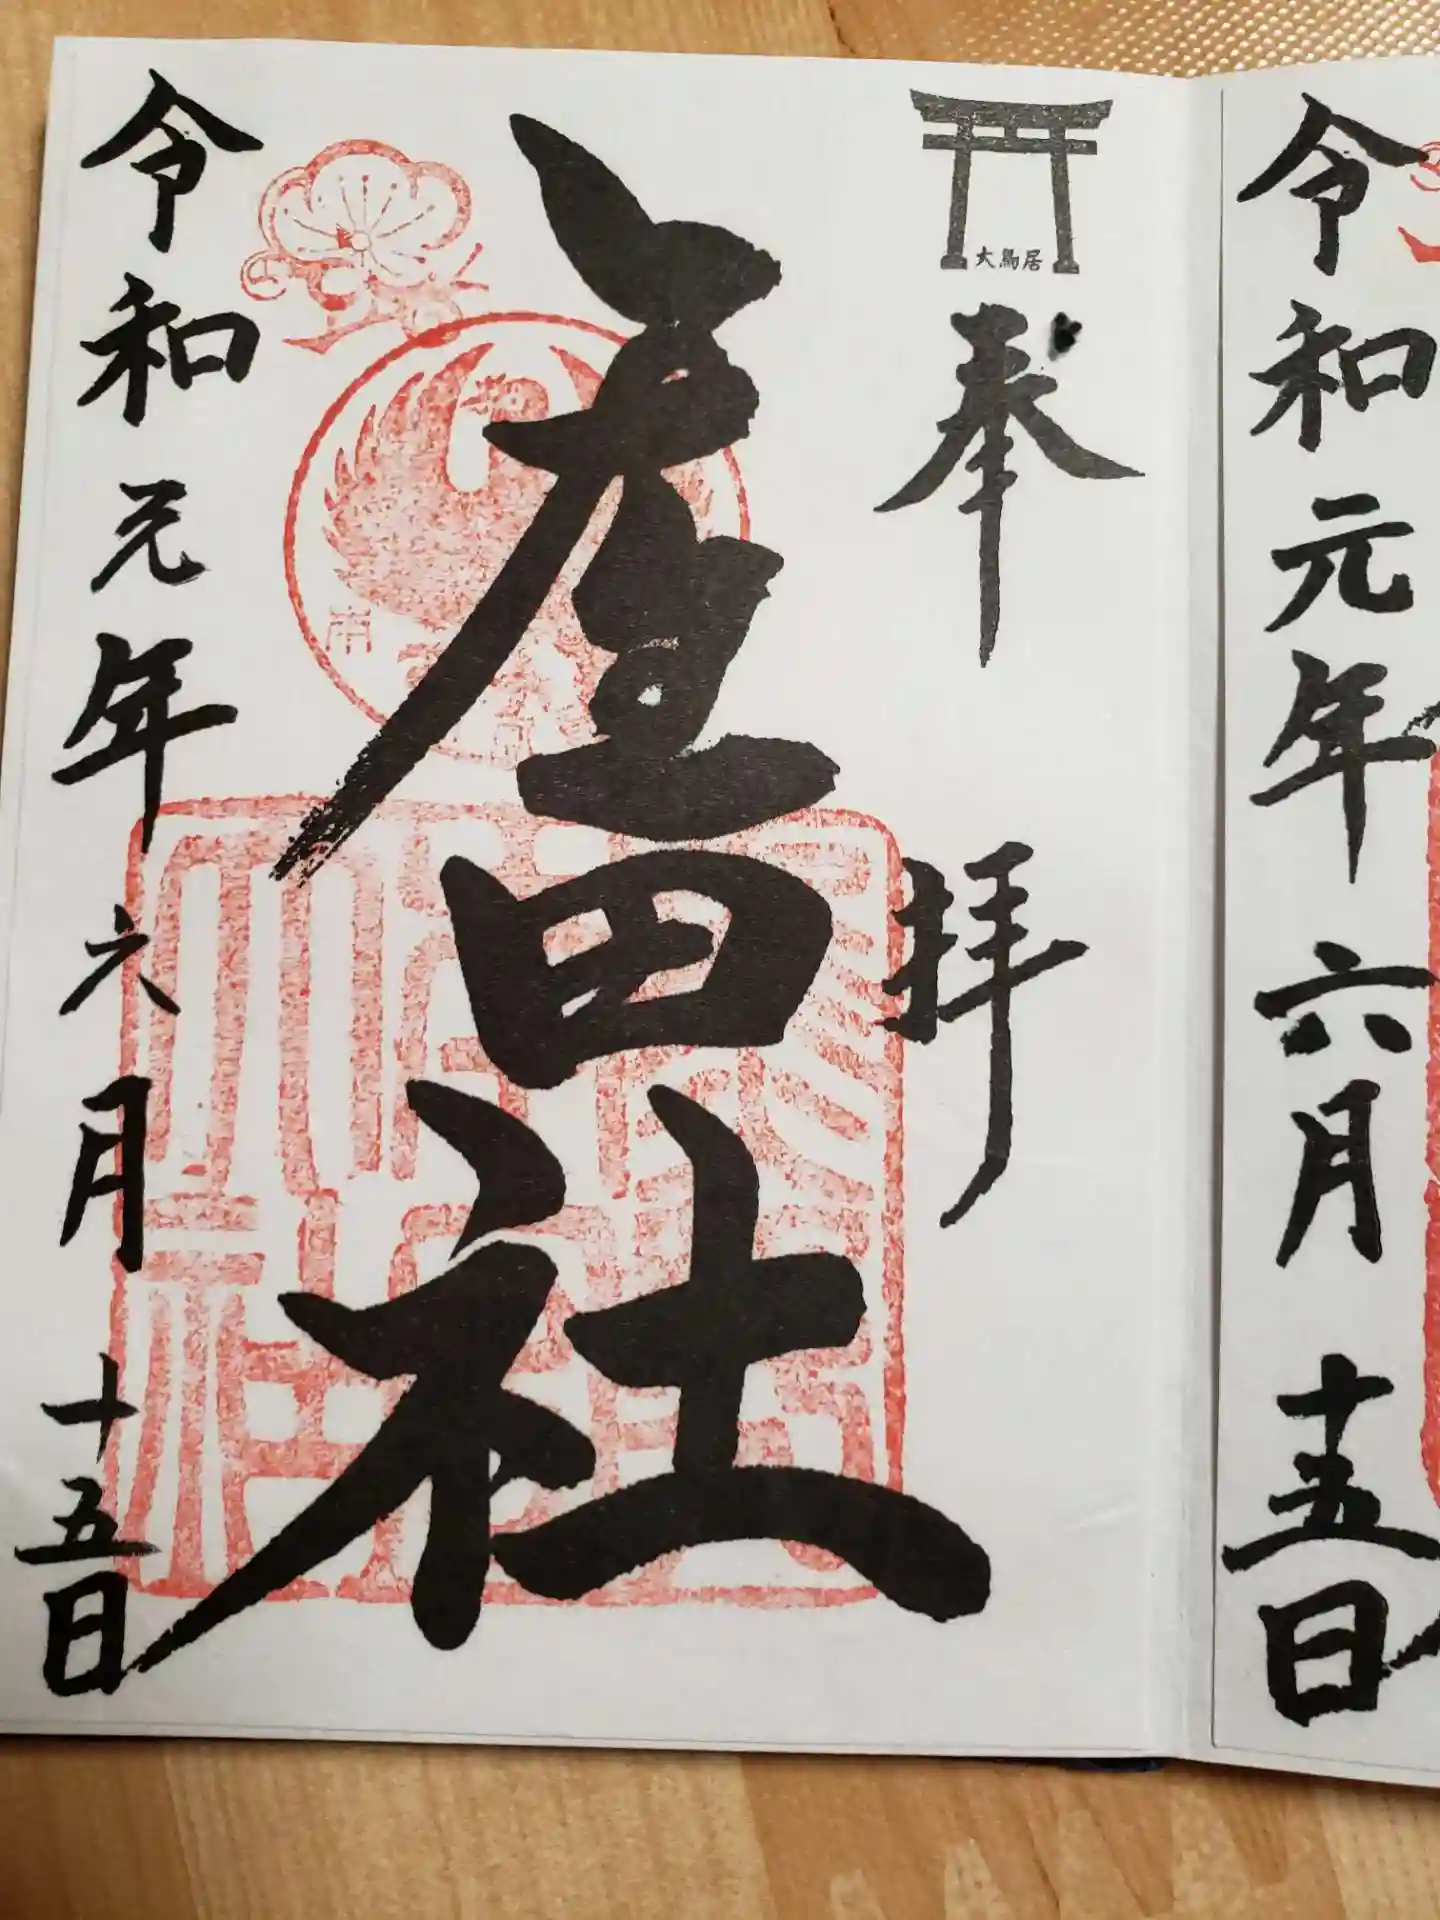 令和元年六月十五日
大鳥居
奉拝
田社
令和元年六月十五日